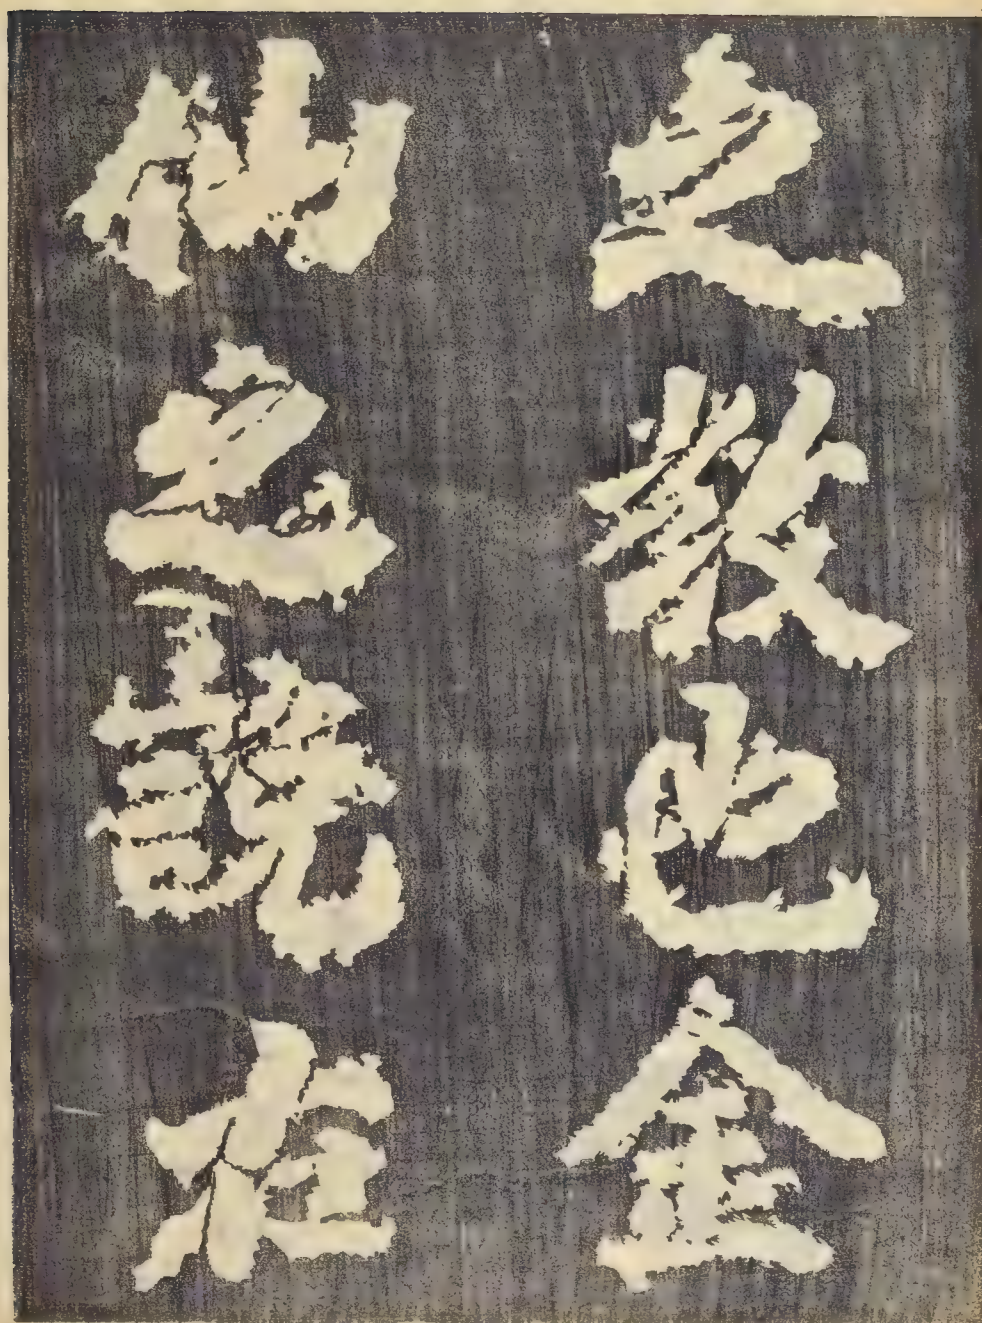 之教也金
仙之說在